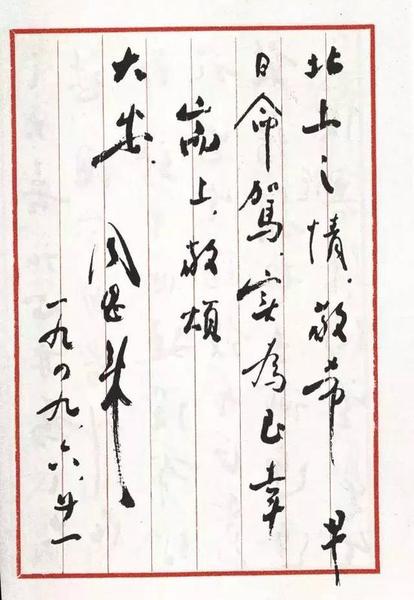 北上之情，敬希　早
日命駕，实為至幸
耑上，敬頌
大安．
周恩来
一九四九、六、廿一